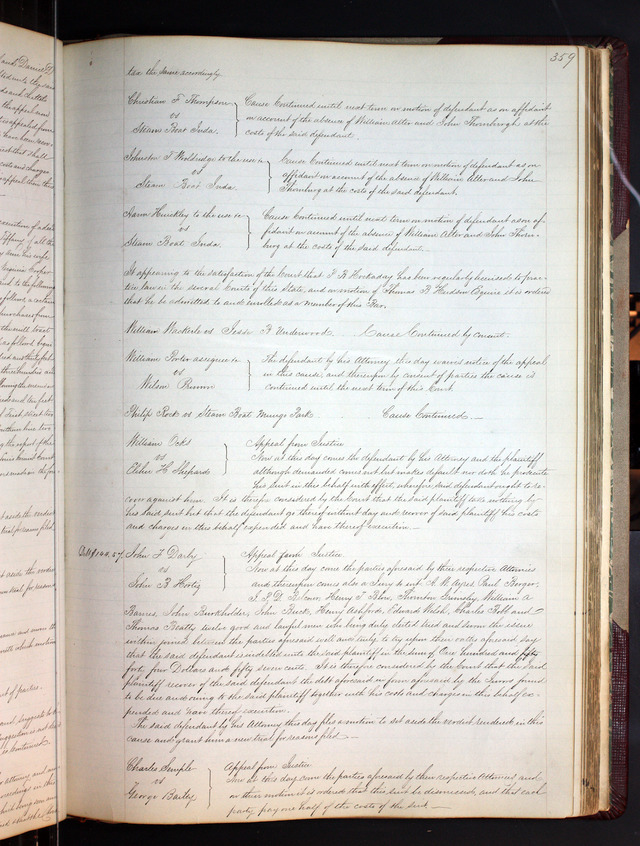 359
tax the same accordingly.
Christian F Thompson
vs
Steam Boat Inda.
Cause Continued until next term on motion of defendant as on affidavit
on account of the absence of William Alter and John Thornburgh at the
costs of the said defendant.
Johnston T Woldridge to the use &c
vs
Steam Boat Inda
Cause Continued until next term on motion of defendant as on
affidavit on account of the absence of William Alter and John
Thornburg at the costs of the said defendant.
Aaron Hinckley to the use &c
vs
Steam Boat Inda.
Cause Continued until next term on motion of defendant as on af-
fidavit on account of the absence of William Alter and John Thorn-
burg at the costs of the said defendant.
It appearing to the satisfaction of the Court that I B Hockaday has been regularly licensed to prac-
tice law in the several Courts of this State, and on motion of Thomas B Hudson Esquire it is ordered
that he be admitted to and enrolled as a member of this Bar.
William Wackerle vs Jesse R Underwood. Cause Continued by consent.
William Porter assignee &c
vs
Wilson Primm
The defendant by his Attorney this day waives notice of the appeal
in this cause, and thereupon by consent of parties the cause is
continued until the next term of this Court
Philip Rock vs Steam Boat Mungo Park Cause Continued.
William
vs
Elihu H Shepard
Appeal from Justice
Now at this day comes the defendant by his Attorney and the plaintiff
although demanded comes not but makes default nor doth he prosecute
his suit in this behalf with effect, wherefore said defendant ought to re-
cover against him. It is therefore considered by the Court that the said plaintiff take nothing by
his said suit but that the defendant go thereof without day and recover of said plaintiff his costs
and charges in this behalf expended and have thereof execution
144.57
John F Darby
vs
John B Hortiz
Appeal from Justice
Now at this day come the parties aforesaid by their respective Attornies
and thereupon comes also a Jury to wit, Ayres, Paul
Henry T Blow, Thornton Grimsley, William A
Barnes, John Burkholder, John Buck, Henry Ashford, Edward Walsh, Charles and
Thomas Beatty twelve good and lawful men who being duly elected tried and sworn the issue
within joined between the parties aforesaid well and truly to try upon their oaths aforesaid say
that the said defendant is indebted unto the said plaintiff in the sum of One hundred and
forty four Dollars and fifty seven cents. It is therefore considered by the Court that the said
plaintiff recover of the said defendant the debt aforesaid in form aforesaid by the Jurors found
to be due and owing to the said plaintiff together with his costs and charges in this behalf ex-
pended and have thereof execution.
The said defendant by his Attorney this day files a motion to set aside the verdict rendered in this
cause and grant him a new trial for reasons filed
Charles Semple
vs
George Bailey
Appeal from Justice
Now at this day come the parties aforesaid by their respective Attornies and
on their motion it is ordered that this suit be dismissed, and that each
party pay one half of the costs of the suit